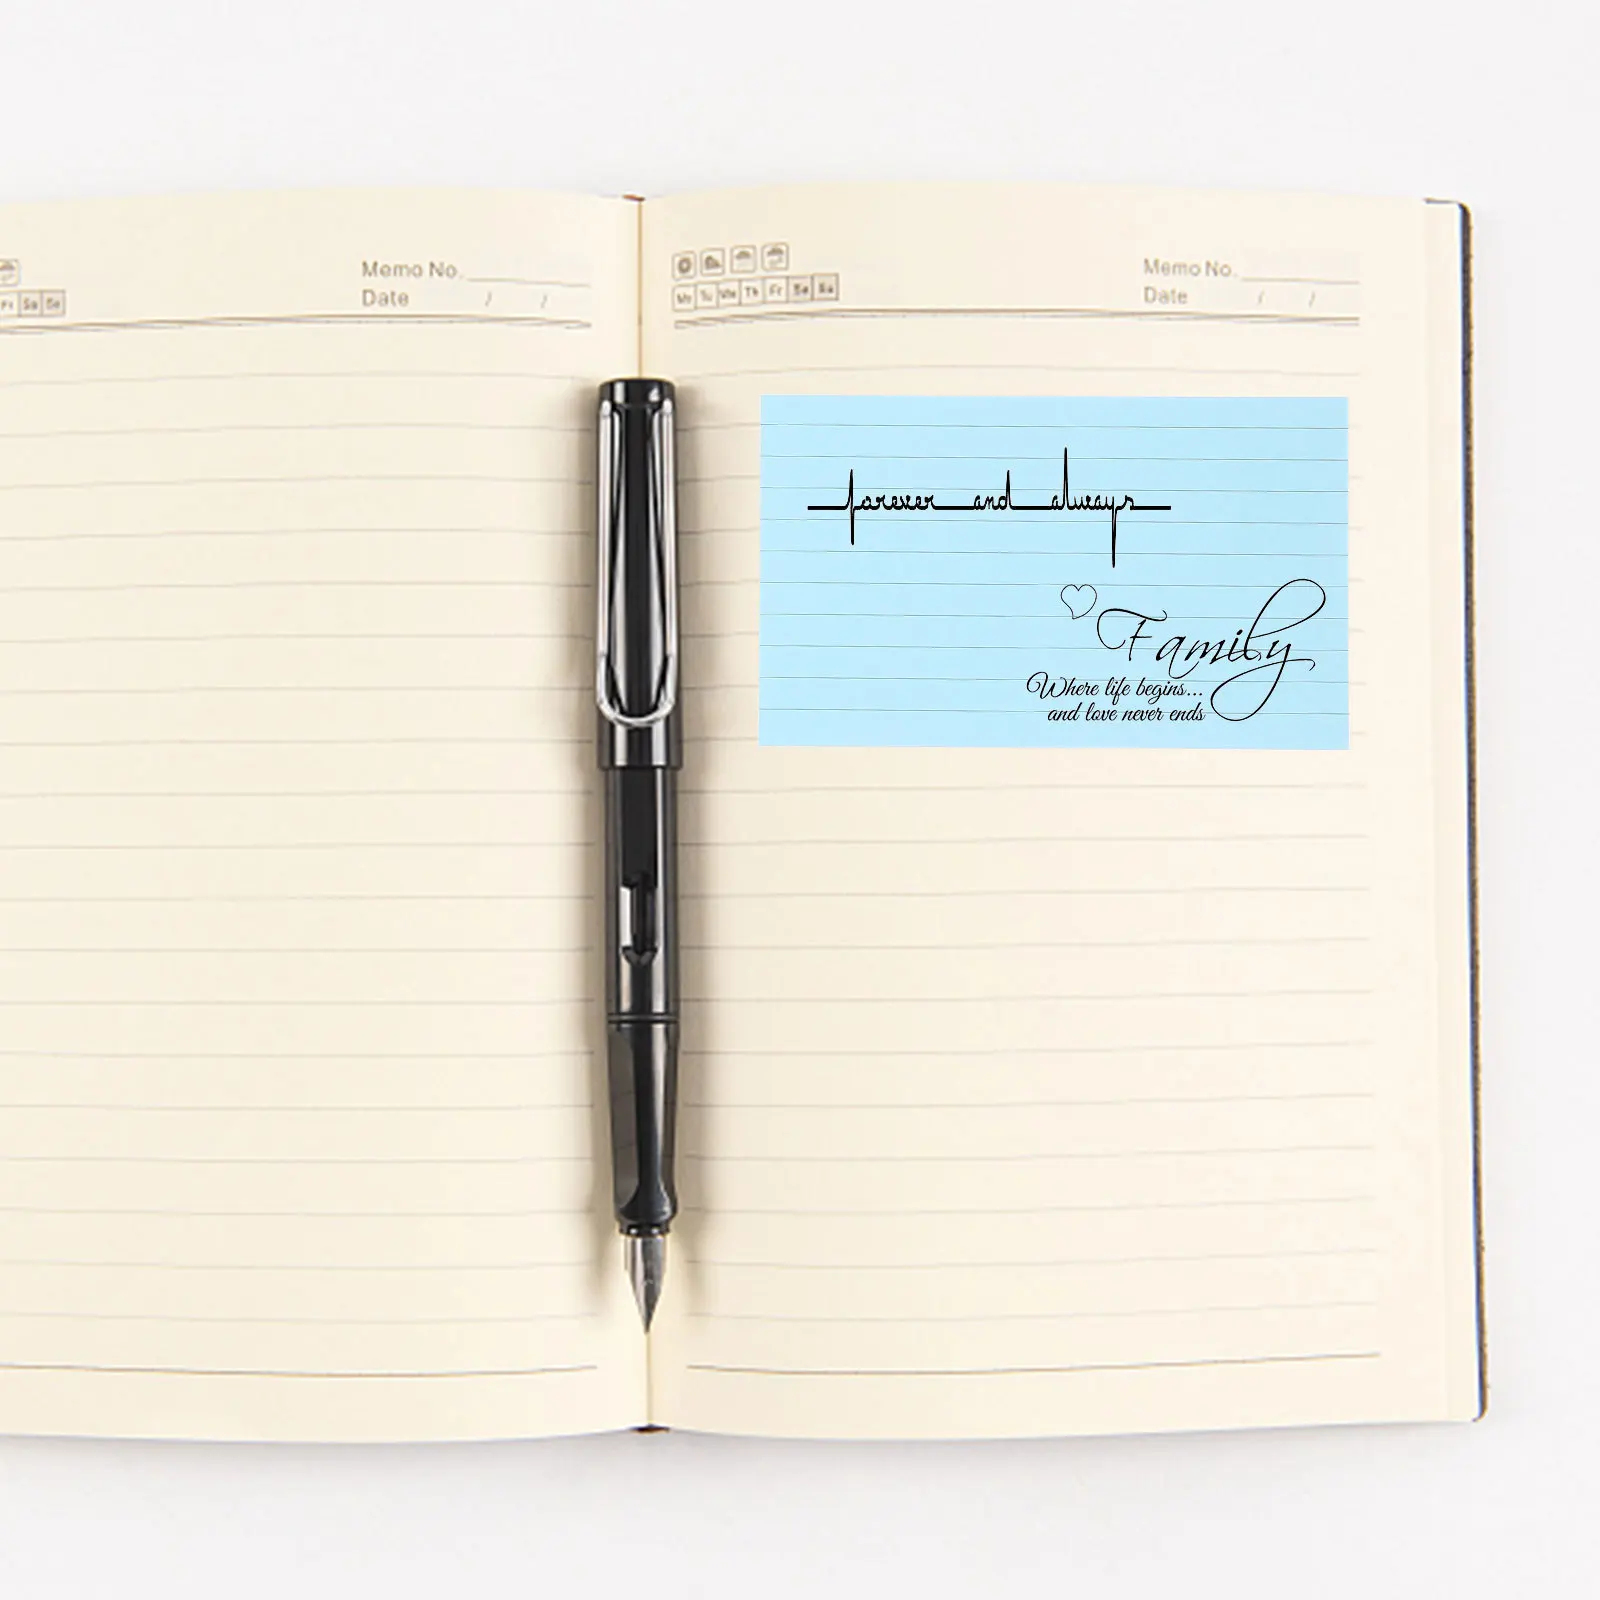 Fr Sa Su
Memo No.
Date / /
Mo Tu We Th Fr Sa Su
Memo No.
Date / /
forever and always
Family
Where life begins...
and love never ends